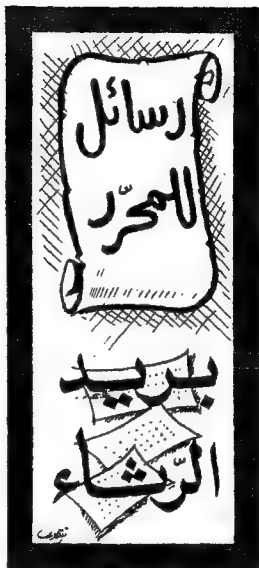 رسائل
للمحرّر
بريد
الرّشاء